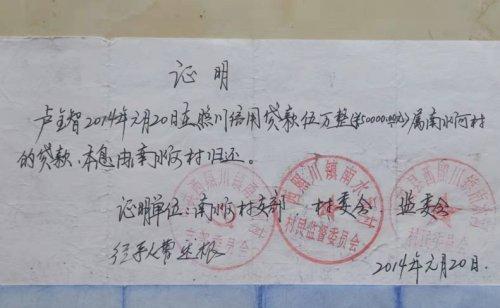 证明
卢全智2014年元月20日在照川信用贷款伍万整(¥50000.00元)属南水河村
的贷款,本息由南水河村归还。
证明单位:南水河村支部 村委会 监委会
经手人
2014年元月20日.
照川镇南水河村
村民监督委员会